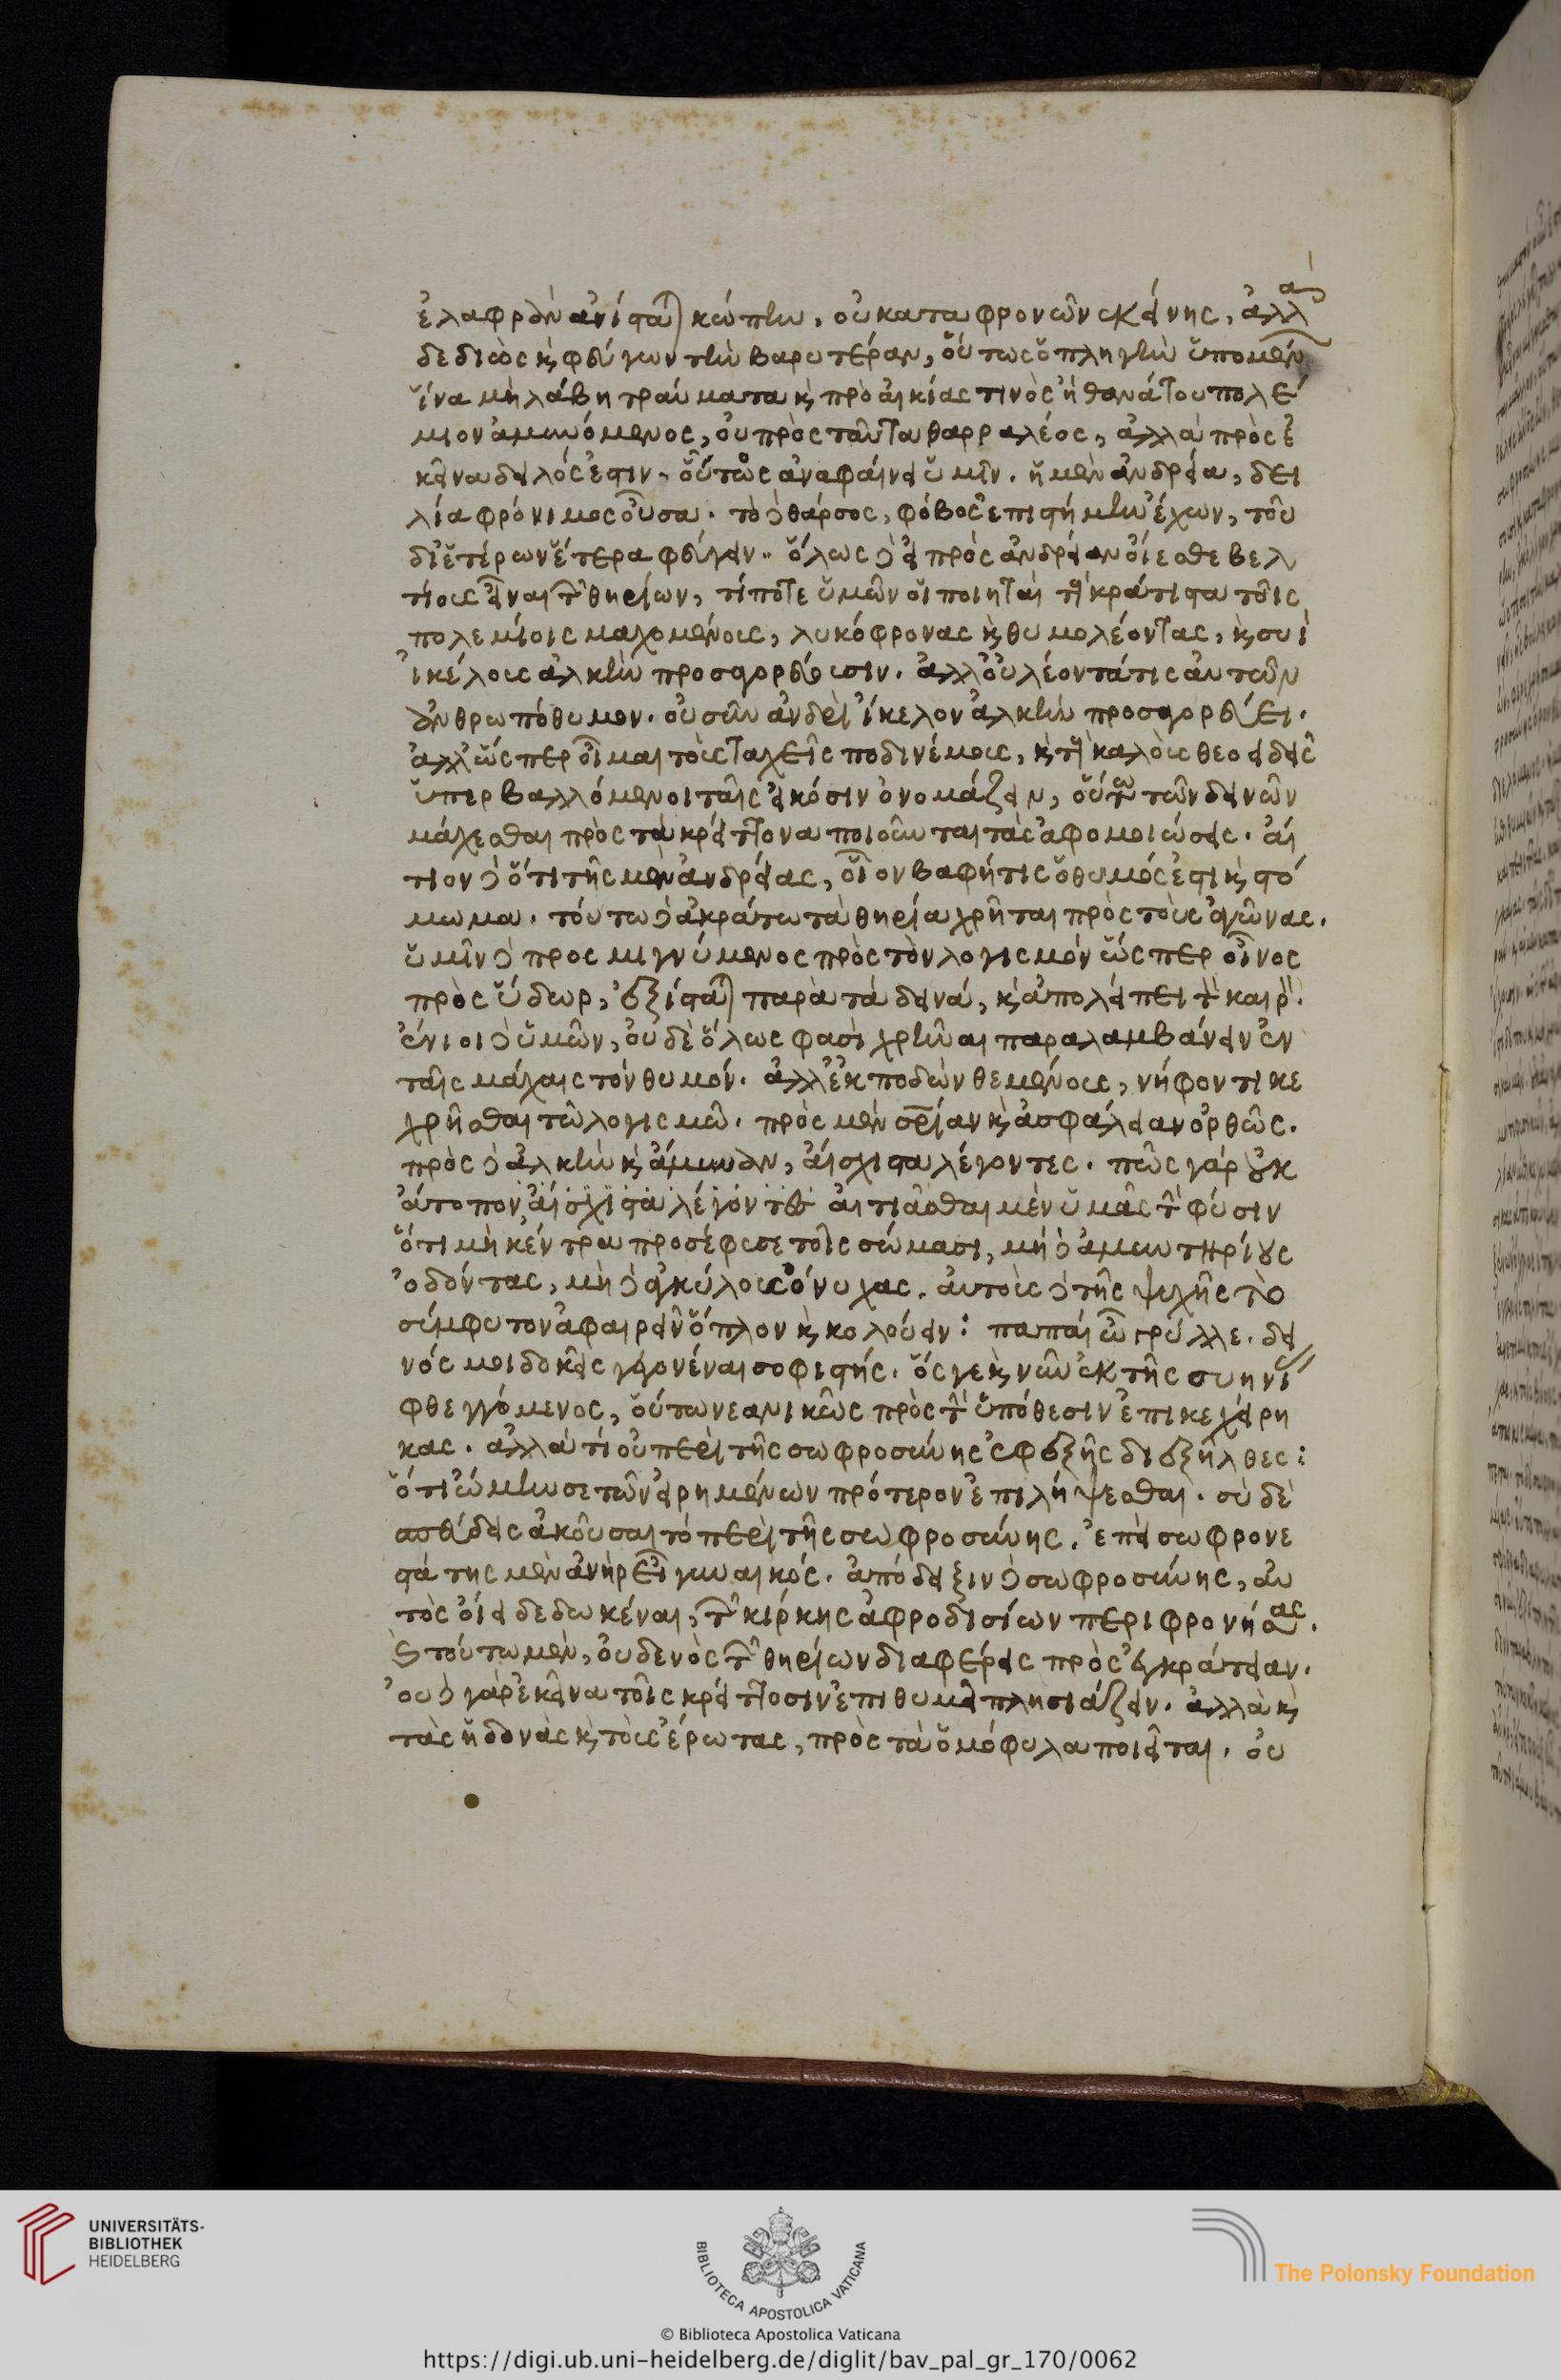 ἐλαφρὰν ἀνίσταται κώπην, οὐ καταφρονῶν ἐκείνης, ἀλλὰ
δεδιὼς κ φεύγων τὴν βαρυτέραν, οὕτως ὁ πληγὴν ὑπομένων
ἵνα μὴ λάβη τραύματα κ πρὸ αἰκίας τινὸς ἢ θανάτου πολέ
μιον ἀμυνόμενος, οὐ πρὸς ταῦτα θαρραλέος, ἀλλὰ πρὸς ἐ
κεῖνα δειλός ἐστιν. οὕτως ἀναφαίνει ὑμῖν. ἡ μὲν ἀνδρεία, δει
λία φρόνιμος οὖσα. τὸ δὲ θάρσος, φόβος ἐπιστήμην ἔχων, τοῦ
δι ἑτέρων ἕτερα φεύγειν. ὅλως δὲ εἰ πρὸς ἀνδρείαν οἴεσθε βελ
τίους εἶναι τῶν θηρίων, τί ποτε ὑμῶν οἱ ποιηταὶ τοὺς κράτιστα τοῖς
πολεμίοις μαχομένους, λυκόφρονας κ θυμολέοντας, κ συῒ
ἰκέλους ἀλκὴν προσαγορεύουσιν. ἀλλ οὐ λέοντά τις αὐτῶν
ἀνθρωπόθυμον. οὐ σῦν ἀνδρὶ ἴκελον ἀλκὴν προσαγορεύει.
ἀλλ ὥσπερ οἶμαι τοὺς ταχεῖς ποδηνέμους, κ τοὺς καλοὺς θεοειδεῖς
ὑπερβαλλόμενοι ταῖς εἰκόσιν ὀνομάζειν, οὕτω τῶν δεινῶν
μάχεσθαι πρὸς τὰ κρείττονα ποιοῦνται τὰς ἀφομοιώσεις. αἴ
τιον δὲ ὅτι τῆς μὲν ἀνδρείας, οἷον βαφή τις ὁ θυμός ἐστι κ στό
μωμα. τούτω δὲ ἀκράτω τὰ θηρία χρῆται πρὸς τοὺς ἀγῶνας.
ὑμῖν δὲ προσμιγνύμενος πρὸς τὸν λογισμόν ὥσπερ οἶνος
πρὸς ὕδωρ, ἐξίσταται παρὰ τὰ δεινά, κ ἀπολείπει τὸν καιρόν.
ἔνιοι δὲ ὑμῶν, οὐδὲ ὅλως φασὶ χρῆναι παραλαμβάνειν ἐν
ταῖς μάχαις τὸν θυμόν. ἀλλ ἐκποδὼν θεμένους, νήφοντι κε
χρῆσθαι τῶ λογισμῶ. πρὸς μὲν σωτηρίαν κ ἀσφάλειαν ὀρθῶς.
πρὸς δὲ ἀλκὴν κ ἄμυναν, αἴσχιστα λέγοντες. πῶς γὰρ οὐκ
ἄτοπον, αἴσχιστα λέγοντες αἰτιᾶσθαι μὲν ὑμᾶς τὴν φύσιν
ὅτι μὴ κέντρα προσέφυσε τοῖς σώμασι, μὴ δὲ ἀμυντηρίους
ὀδόντας, μὴ δὲ ἀγκύλους ὄνυχας. αὐτοὺς δὲ τῆς ψυχῆς τὸ
σύμφυτον ἀφαιρεῖν ὅπλον κ κολούειν: παπαὶ ὦ γρύλλε. δει
νός μοι δοκεῖς γεγονέναι σοφιστής. ὅς γε κ νῦν ἐκ τῆς συηνί
φθεγγόμενος, οὕτω νεανικῶς πρὸς τὴν ὑπόθεσιν ἐπικεχείρη
κας. ἀλλὰ τί οὐ περὶ τῆς σωφροσύνης ἐφεξῆς διεξῆλθες:
ὅτι ὤμην σε τῶν εἰρημένων πρότερον ἐπιλήψεσθαι. σὺ δὲ
σπεύδεις ἀκοῦσαι τὸ περὶ τῆς σωφροσύνης. ἐπεὶ σωφρονε
στάτης μὲν ἀνὴρ εἶ γυναικός. ἀπόδειξιν δὲ σωφροσύνης, αὐ
τὸς οἴει δεδωκέναι, τῶν κίρκης ἀφροδισίων περιφρονήσας.
κ τούτω μὲν, οὐδενὸς τῶν θηρίων διαφέρεις πρὸς ἐγκράτειαν.
οὐδὲ γὰρ ἐκεῖνα τοῖς κρείττοσιν ἐπιθυμεῖ πλησιάζειν. ἀλλὰ κ
τὰς ἡδονὰς κ τοὺς ἔρωτας, πρὸς τὰ ὁμόφυλα ποιεῖται. οὐ
UNIVERSITÄTS-
BIBLIOTHEK
HEIDELBERG
BIBLIOTECA APOSTOLICA VATICANA
The Polonsky Foundation
© Biblioteca Apostolica Vaticana
https://digi.ub.uni-heidelberg.de/diglit/bav_pal_gr_170/0062